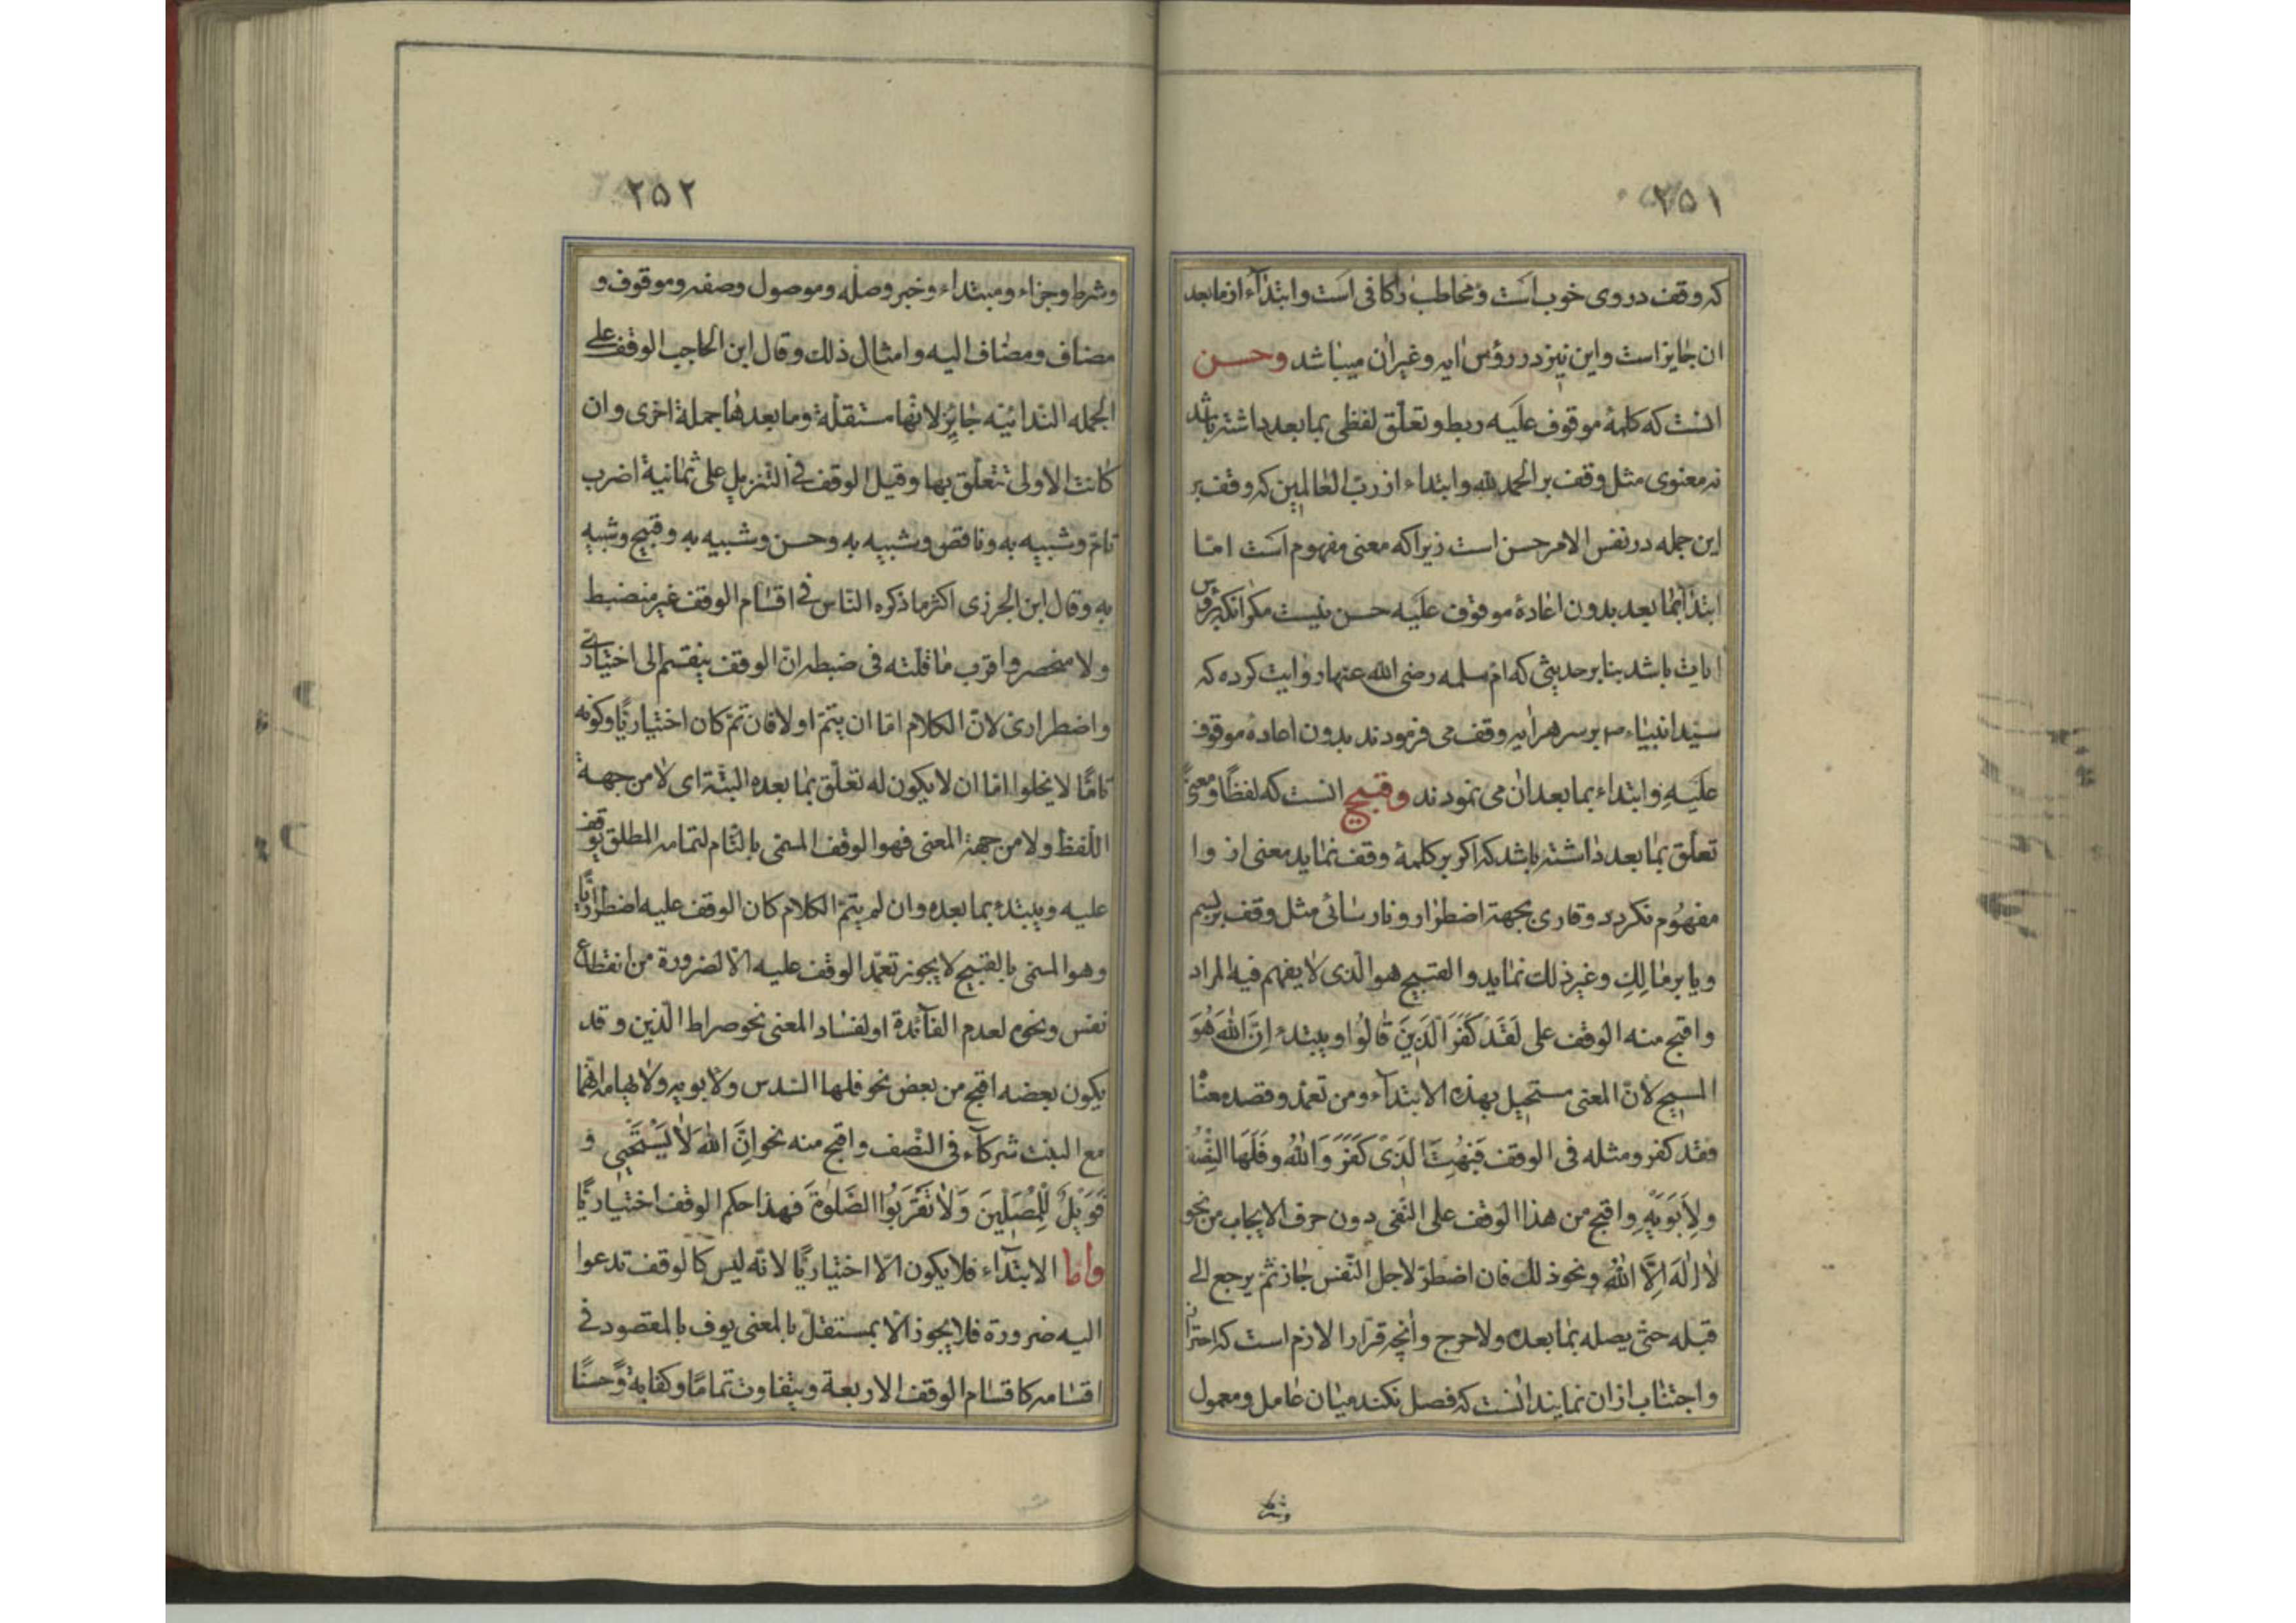 ۲۵۱
که وقف در وی خوب است و مخاطب را کافی است و ابتدآء از مابعد
ان جایز است و این نیز در رؤس ایه و غیر ان میباشد وحسن
انست که کلمهٔ موقوف علَیه ربط و تعلّق لفظی بمابعد داشته باشد
نه معنوی مثل وقف بر الحمد لله و ابتداء از ربّ العالمین که وقف بر
این جمله در نفس الامر حسن است زیرا که معنی مفهوم است امّا
ابتدا بمابعد بدون اعادهٔ موقوف علَیه حسن نیست مکر انکه رؤس
ایات باشد بنا بر حدیثی که امّ سلمه رضی الله عنها روایت کرده که
سیّد انبیاء ص بر سر هر ایه وقف می فرمودند بدون اعادهٔ موقوف
علَیهِ و ابتداء بما بعد ان می نمودند وقبیح انست که لفظًا و معنیً
تعلّق بمابعد داشته باشد که اکر بر کلمهٔ وقف نماید معنی از و ا
مفهُوم نکردد و قاری بجهة اضطرار و نارسائی مثل وقف بر بسم
و یا بر مالِكِ و غیر ذلك نماید و القبیح هو الّذی لا یفهم فیه المراد
و اقبح منه الوقف علی لَقَدْ کَفَرَ الَّذینَ قالُوا و یبتدء اِنَّ اللّٰهَ هُوَ
المسیح لانّ المعنی مستحیل بهذه الابتدآء و من تعمّد و قصد معنٰا
فقد کفر و مثله فی الوقف فَبُهِتَ الَّذی کَفَرَ وَ اللّٰهُ و فَلَهَا النِّصْفُ
وَلِاَبَوَیْهِ و اقبح من هذا الوقف علی النّفی دون حرف الایجاب من نحو
لا اِلٰهَ اِلَّا اللّٰهُ و نحو ذلك فان اضطرّ لاجل النّفس جاز ثمّ یرجع الی
قبله حتّی یصله بمابعده ولا حرج و انچه قرّاء را لازم است که احتراز
و اجتناب از ان نمایند انست که فصل نکند میان عامل و معمول
وشرط
۲۵۲
و شرط و جزاء و مبتداء و خبر و صله و موصول و صفه و موقوف و
مضاف و مضاف الیه و امثال ذلك و قال ابن الحاجب الوقف علی
الجمله النّدائیّه جایِز لانّها مستقلّة و ما بعدها جملة اخری و ان
کانت الاولی تتعلّق بها و قیل الوقف فی التّنزیل علی ثمانیة اضرب
تامّ و شبیه به و ناقص و شبیه به و حسن و شبیه به و قبیح و شبیه
به و قال ابن الجزری اکثر ما ذکره النّاس فی اقسام الوقف غیر منضبط
ولا منحصر و اقرب ما قلته فی ضبطه انّ الوقف ینقسم الی اختیاریّ
و اضطراری لانّ الکلام امّا ان یتمّ او لا فان تمّ کان اختیاریًّا و کونه
تامًّا لا یخلوا امّا ان لا یکون له تعلّق بما بعده البتّة ای لا من جهة
اللّفظ و لا من جهة المعنی فهو الوقف المسمّی بالتّام لتمامه المطلق یوقف
علیه و یبتدء بما بعده و ان لم یتمّ الکلام کان الوقف علیه اضطراریًّا
و هو المسمّی بالقبیح لا یجوز تعمّد الوقف علیه الّا لضرورة من انقطاع
نفس و نحوه لعدم الفآئدة او لفساد المعنی نحو صراط الّذین و قد
یکون بعضه اقبح من بعض نحو فلها السّدس ولابویه ولایهامه انّهما
مع البنت شرکآء فی النّصف و اقبح منه نحو اِنَّ اللّٰهَ لا یَسْتَحْیی و
فَوَیْلٌ لِلْمُصَلّینَ وَ لا تَقْرَبُوا الصَّلوٰةَ فهذا حکم الوقف اختیاریًّا
واما الابتدآء فلا یکون الّا اختیاریًّا لانّه لیس کالوقف تدعوا
الیه ضرورة فلا یجوز الّا بمستقلّ بالمعنی یوف بالمقصود فی
اقسامه کاقسام الوقف الاربعة و یتفاوت تمامًا و کفایةً و حسنًا